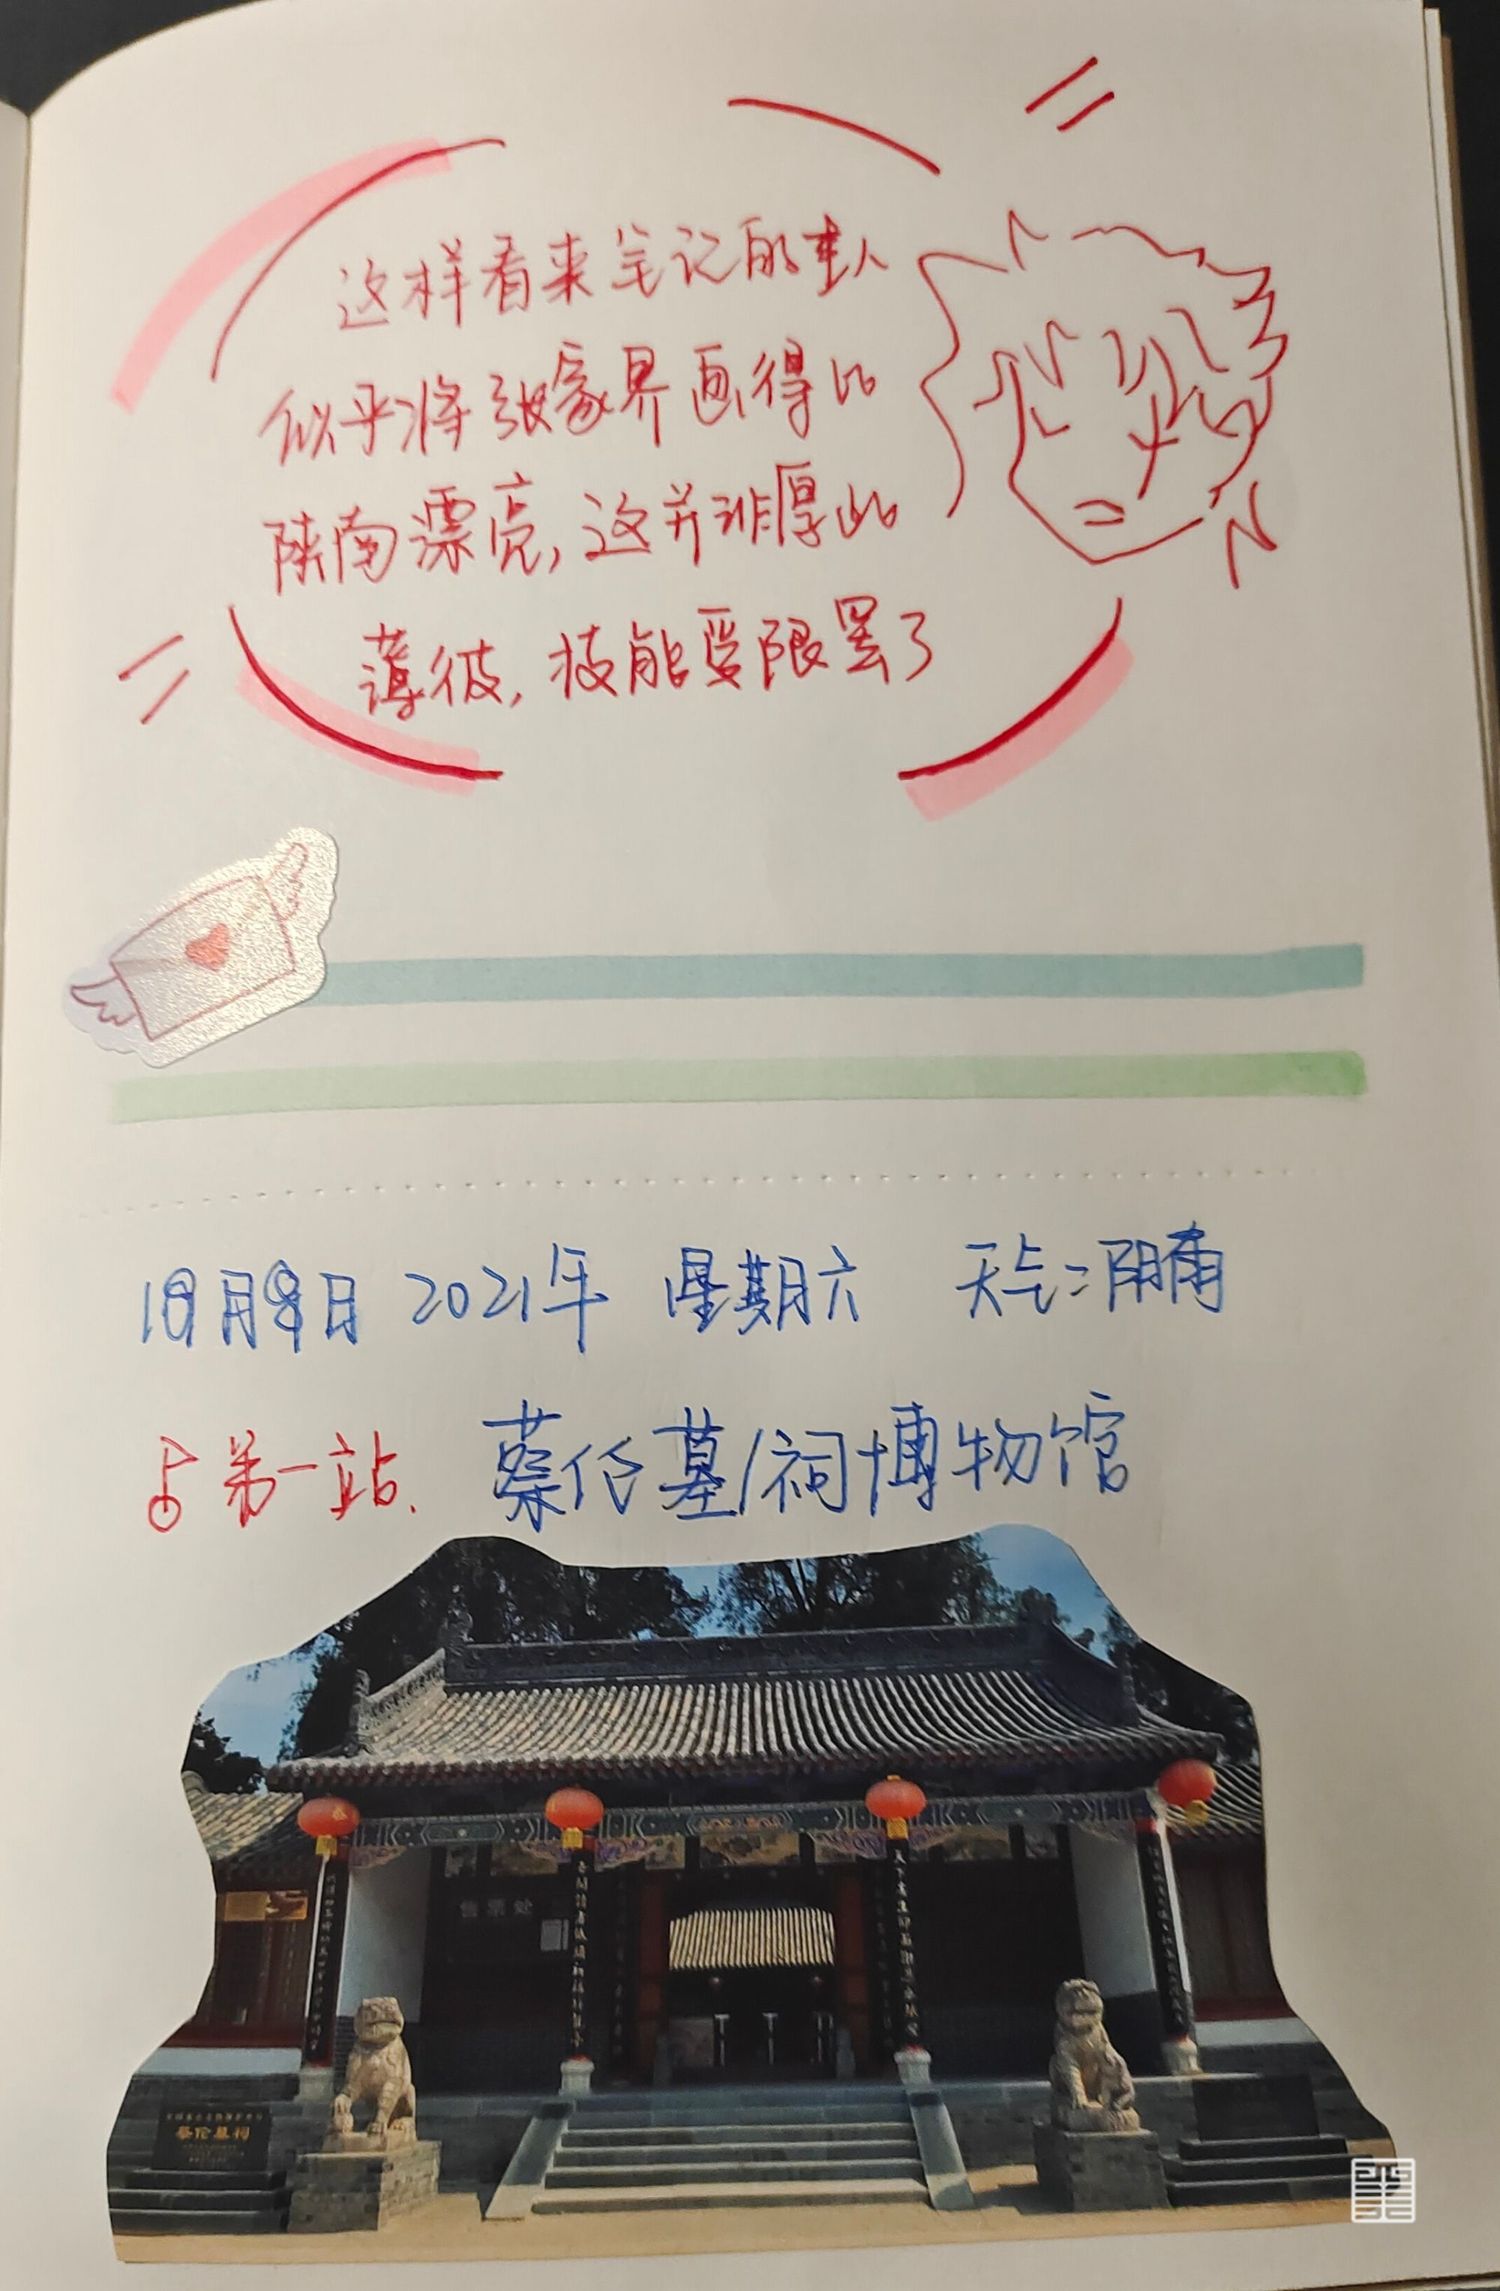 这样看来笔记的主人
似乎将张家界画得比
陕南漂亮,这并非厚此
薄彼,技能受限罢了
10月9日 2021年 星期六 天气:阴雨
第一站. 蔡伦墓/祠博物馆
售票处
蔡伦墓祠